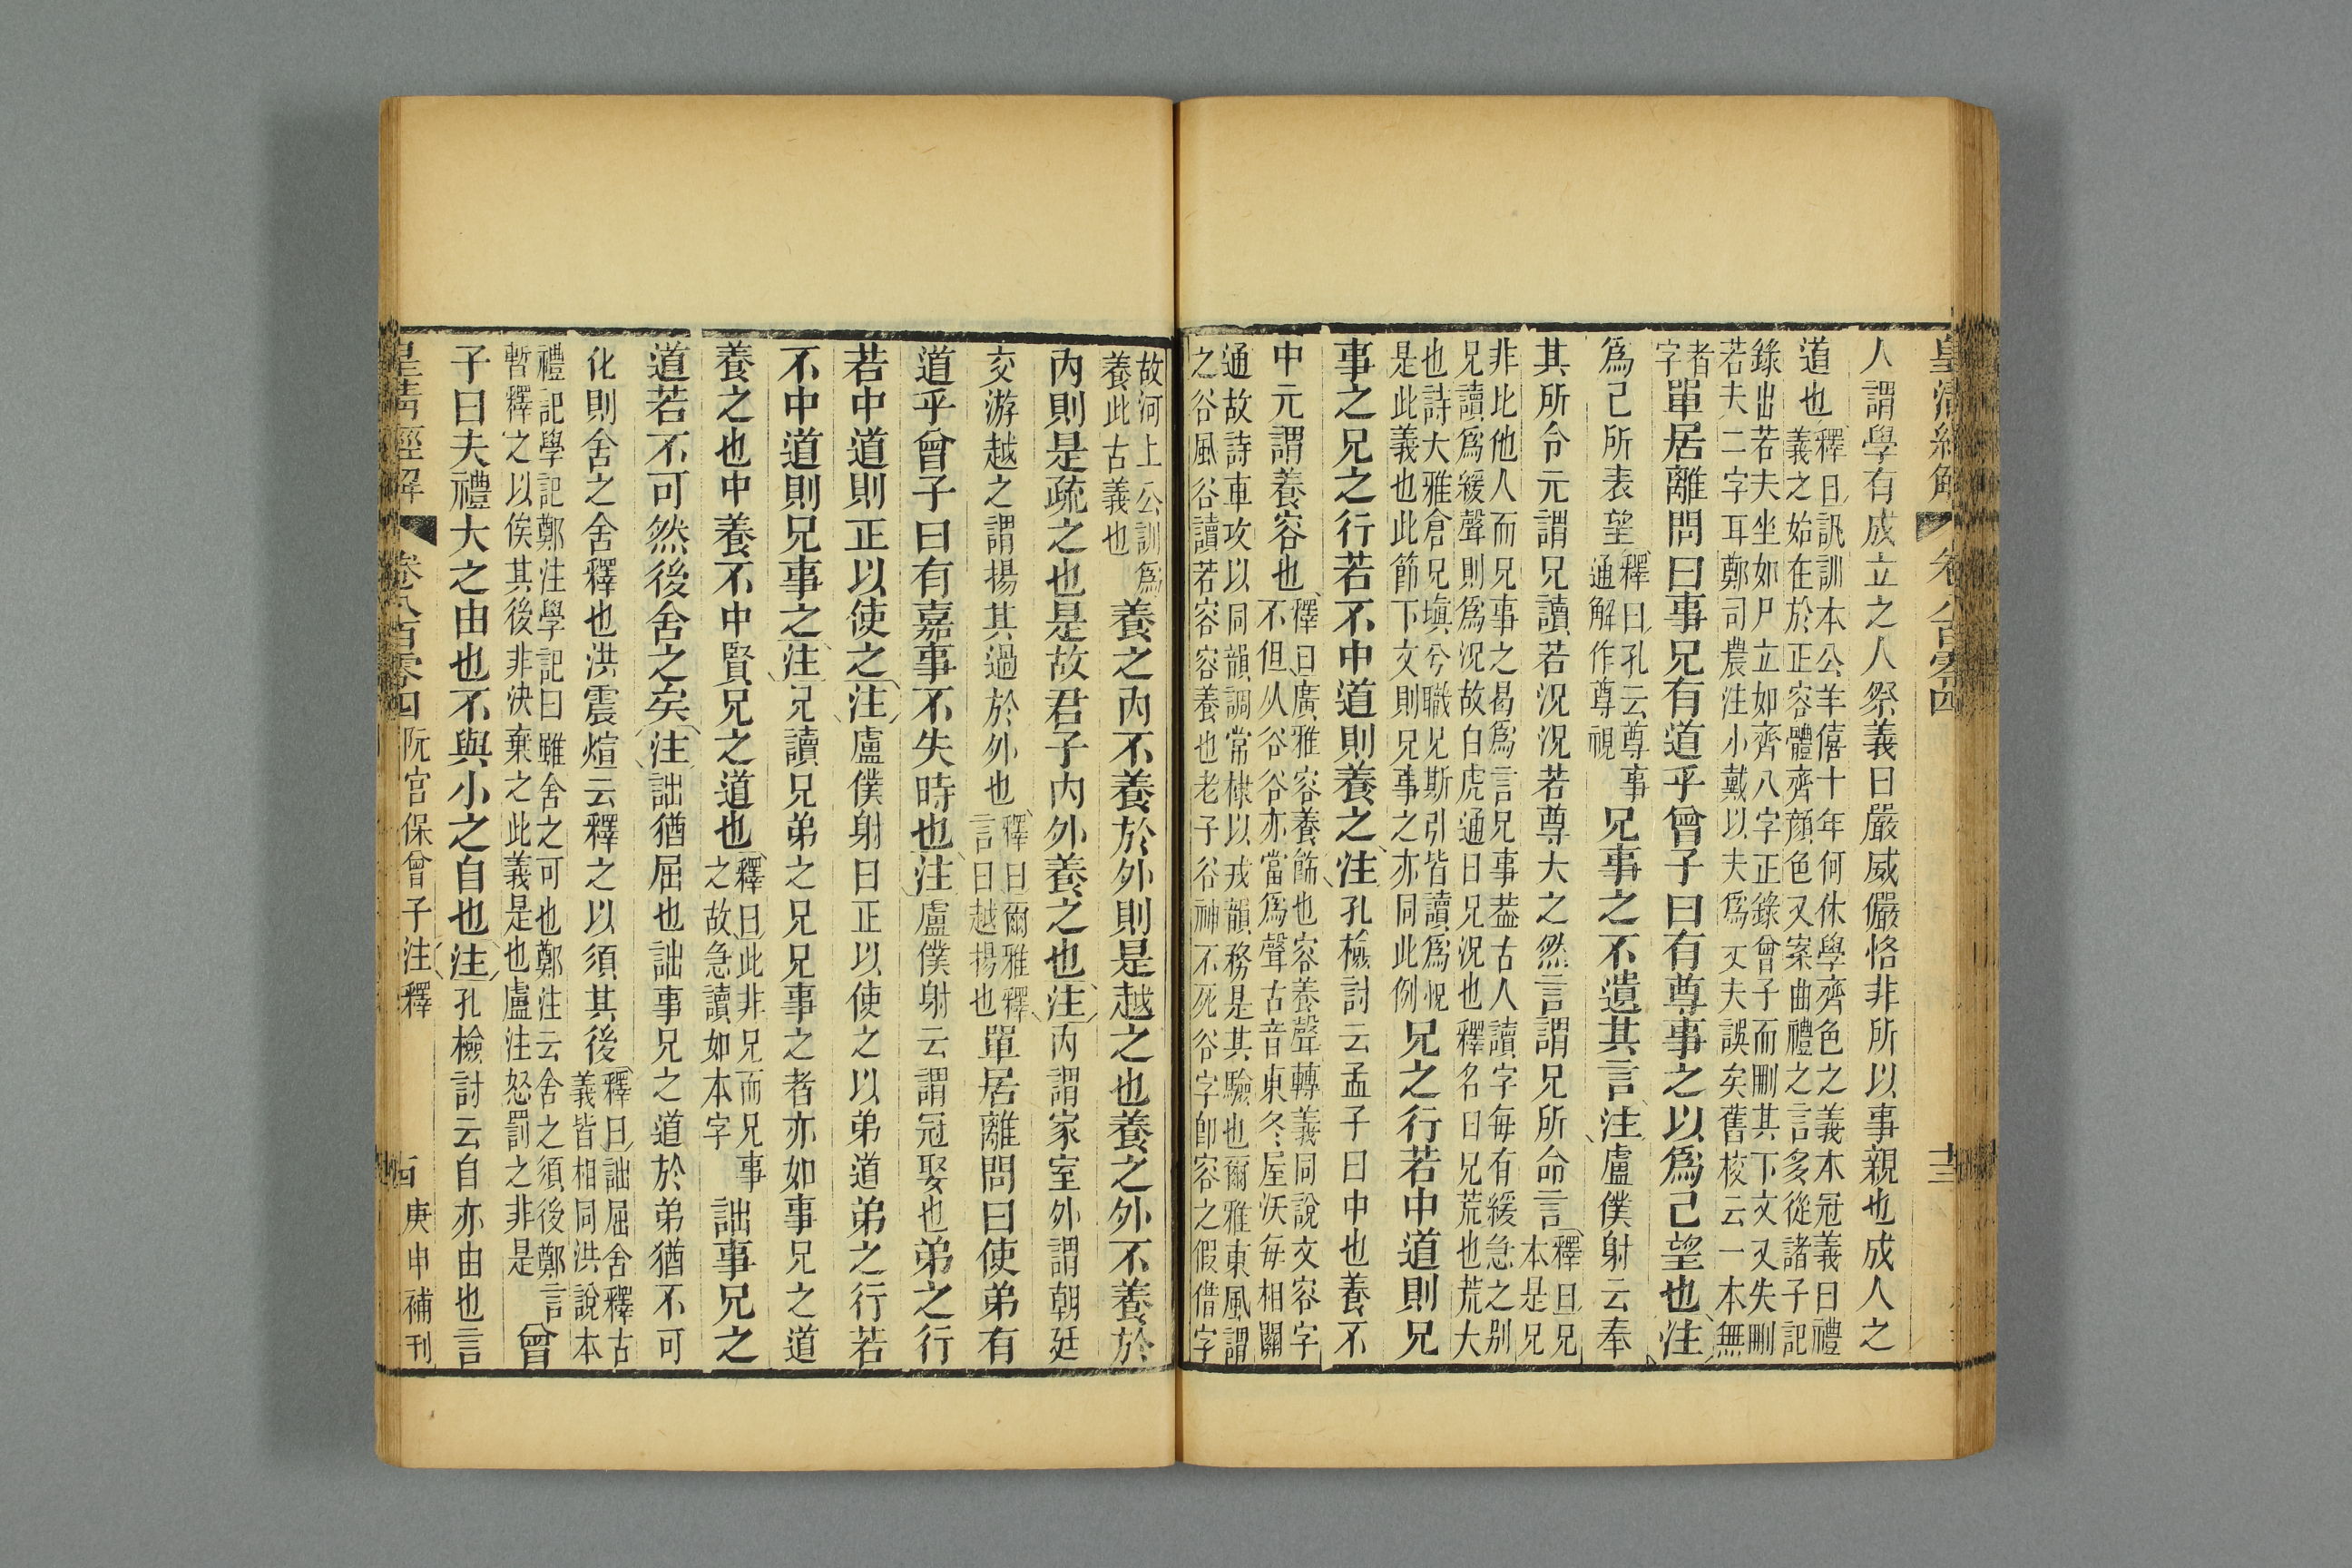 皇清經解 卷八百零四 十三
人謂學有成立之人祭義曰嚴威儼恪非所以事親也成人之
道也釋曰訊訓本公羊僖十年何休學齊色之義本冠義曰禮
義之始在於正容體齊顏色又案曲禮之言多從諸子記
錄出若夫坐如尸立如齊八字正錄曾子而刪其下文又失刪
若夫二字耳鄭司農注小戴以夫爲丈夫誤矣舊校云一本無
者
字單居離問曰事兄有道乎曾子曰有尊事之以爲己望也注
爲己所表望釋曰孔云尊事
通解作尊視兄事之不遺其言注盧僕射云奉
其所令元謂兄讀若況況若尊大之然言謂兄所命言釋曰兄
本是兄
非比他人而兄事之曷爲言兄事葢古人讀字每有緩急之别
兄讀爲緩聲則爲況故白虎通曰兄況也釋名曰兄荒也荒大
也詩大雅倉兄塡兮職兄斯引皆讀爲怳
是此義也此節下文則兄事之亦同此例兄之行若中道則兄
事之兄之行若不中道則養之注孔檢討云孟子曰中也養不
中元謂養容也釋曰廣雅容養飾也容養聲轉義同說文容字
不但从谷谷亦當爲聲古音東冬屋沃每相關
通故詩車攻以同韻調常棣以戎韻務是其驗也爾雅東風謂
之谷風谷讀若容容養也老子谷神不死谷字卽容之假借字
故河上公訓爲
養此古義也養之內不養於外則是越之也養之外不養於
內則是疏之也是故君子內外養之也注內謂家室外謂朝廷
交游越之謂揚其過於外也釋曰爾雅釋
言曰越揚也單居離問曰使弟有
道乎曾子曰有嘉事不失時也注盧僕射云謂冠娶也弟之行
若中道則正以使之注盧僕射曰正以使之以弟道弟之行若
不中道則兄事之注兄讀兄弟之兄兄事之者亦如事兄之道
養之也中養不中賢兄之道也釋曰此非兄而兄事
之故急讀如本字詘事兄之
道若不可然後舍之矣注詘猶屈也詘事兄之道於弟猶不可
化則舍之舍釋也洪震煊云釋之以須其後釋曰詘屈舍釋古
義皆相同洪說本
禮記學記鄭注學記曰雖舍之可也鄭注云舍之須後鄭言
暫釋之以俟其後非決棄之此義是也盧注怒罰之非是曾
子曰夫禮大之由也不與小之自也注孔檢討云自亦由也言
皇清經解 卷八百零四 阮宮保曾子注釋 十四 庚申補刊